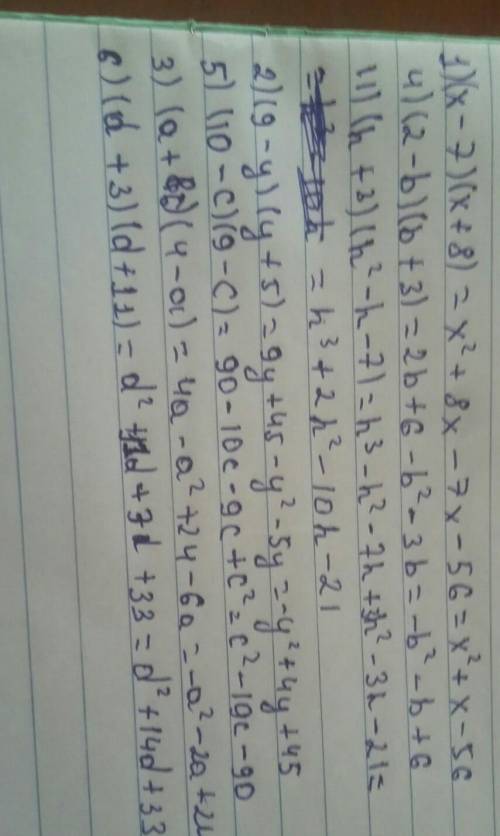 1) (x - 7)(x + 8) = x² + 8x - 7x - 56 = x² + x - 56
4) (2 - b)(b + 3) = 2b + 6 - b² - 3b = -b² - b + 6
11) (h + 3)(h² - h - 7) = h³ - h² - 7h + 3h² - 3h - 21 =
= h³ + 2h² - 10h - 21
2) (9 - y)(y + 5) = 9y + 45 - y² - 5y = -y² + 4y + 45
5) (10 - c)(9 - c) = 90 - 10c - 9c + c² = c² - 19c - 90
3) (a + 6)(4 - a) = 4a - a² + 24 - 6a = -a² - 2a + 24
6) (d + 3)(d + 11) = d² + 11d + 3d + 33 = d² + 14d + 33